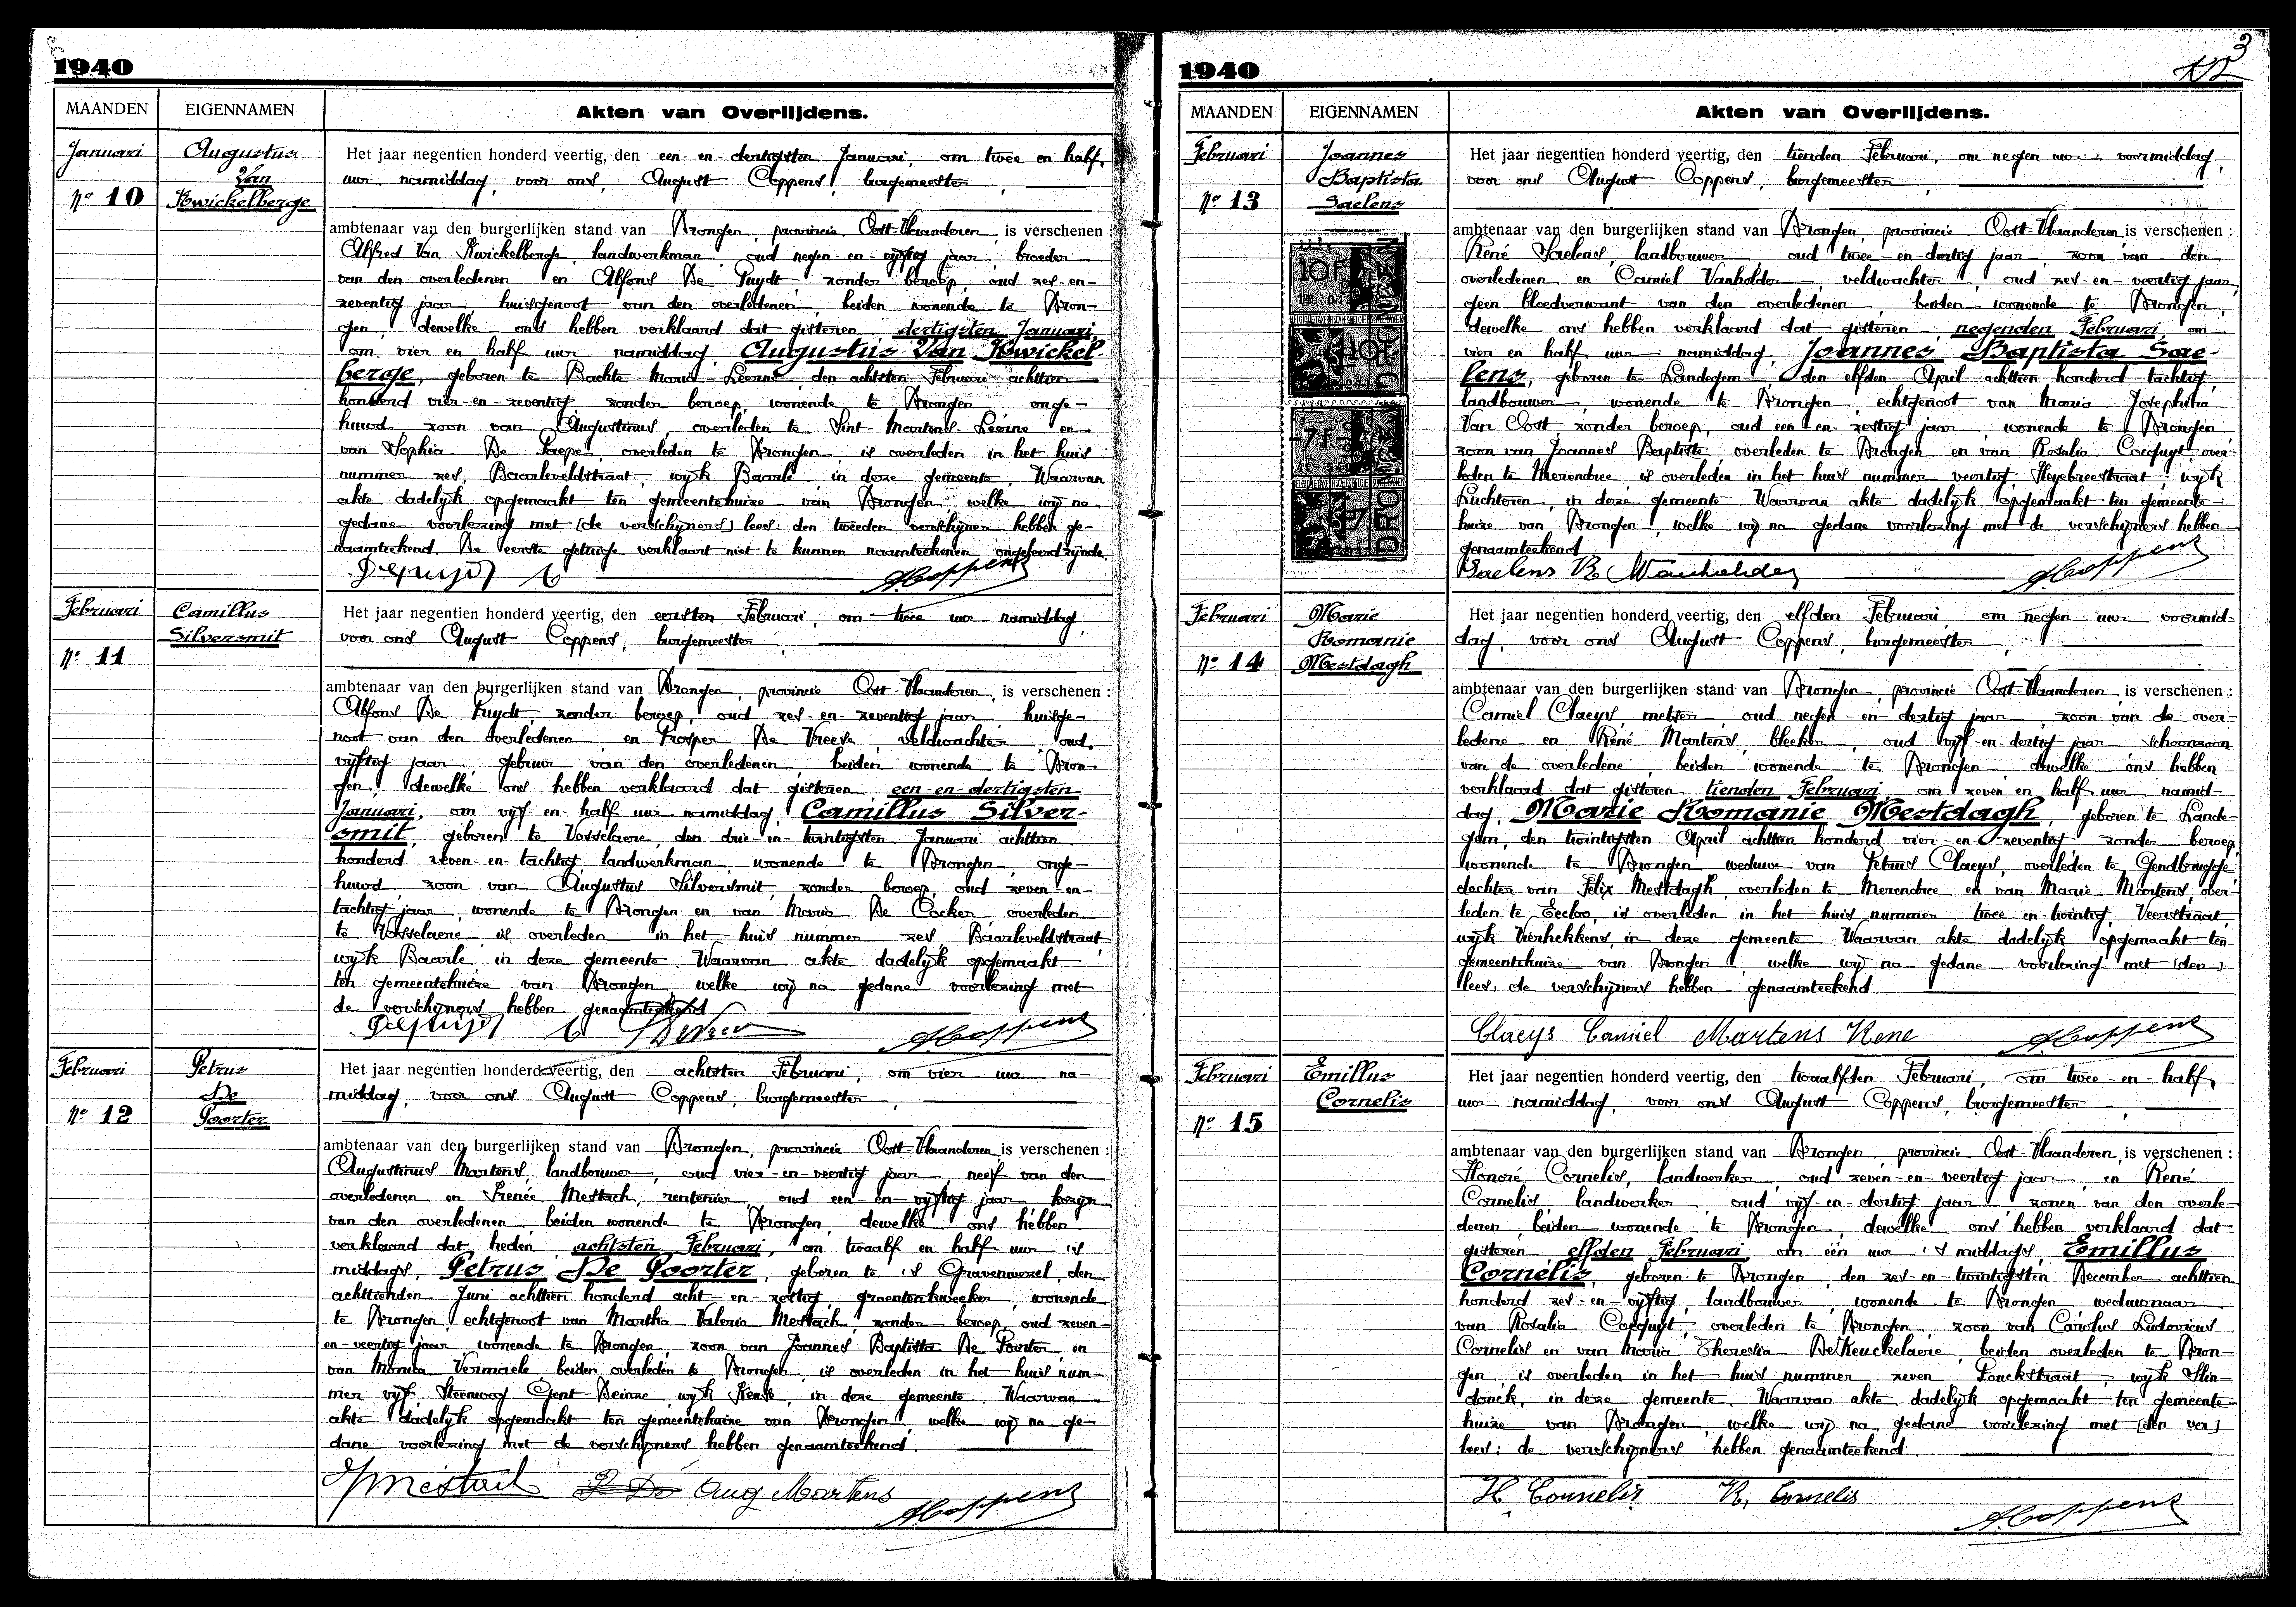 1940
MAANDEN
EIGENNAMEN
Akten van Overlijdens.
Januari
Nº 10
Augustus
Van
Kwickelberge
Het jaar negentien honderd veertig, den een-en-dertigsten Januari, om twee en half
uur namiddag, voor ons, August Coppens, burgemeester,
ambtenaar van den burgerlijken stand van Drongen, provincie Oost-Vlaanderen, is verschenen :
Alfred Van Kwickelberge, landwerkman, oud negen-en-vijftig jaar, broeder
van den overledenen en Alfons De Puydt, zonder beroep, oud zes-en-
zeventig jaar, huisgenoot van den overledenen, beiden wonende te Dron-
gen, dewelke ons hebben verklaard dat gisteren, dertigsten Januari,
om vier en half uur namiddag, Augustus Van Kwickel-
berge, geboren te Bachte-Maria-Leerne, den achtsten Februari achttien
honderd vier-en-zeventig, zonder beroep, wonende te Drongen, onge-
huwd, zoon van Augustinus, overleden te Sint-Martens-Leerne en
van Sophia De Paepe, overleden te Drongen is overleden in het huis
nummer zes, Baarleveldstraat, wijk Baarle, in deze gemeente. Waarvan
akte dadelijk opgemaakt ten gemeentehuize van Drongen, welke wij na
gedane voorlezing met [de verschijners] lees: den tweeden verschijner hebben ge-
naamteekend. De eerste getuige verklaart niet te kunnen naamteekenen, ongeleerd zijnde.
A. Coppens
Februari
Nº 11
Camillus
Silversmit
Het jaar negentien honderd veertig, den eersten Februari, om twee uur namiddag,
voor ons August Coppens, burgemeester,
ambtenaar van den burgerlijken stand van Drongen, provincie Oost-Vlaanderen, is verschenen :
Alfons De Puydt, zonder beroep, oud zes-en-zeventig jaar, huisge-
noot van den overledenen, en Prosper De Vreese, veldwachter, oud
vijftig jaar, gebuur van den overledenen, beiden wonende te Dron-
gen, dewelke ons hebben verklaard dat gisteren, een-en-dertigsten
Januari, om vijf en half uur namiddag, Camillus Silver-
smit, geboren te Vosselaere, den drie-en-twintigsten Januari achttien
honderd zeven-en-tachtig, landwerkman, wonende te Drongen, onge-
huwd, zoon van Augustus Silversmit, zonder beroep, oud zeven-en-
tachtig jaar, wonende te Drongen en van Maria De Cocker, overleden
te Vosselaere, is overleden in het huis nummer zes, Baarleveldstraat,
wijk Baarle, in deze gemeente. Waarvan akte dadelijk opgemaakt
ten gemeentehuize van Drongen, welke wij na gedane voorlezing met
de verschijners hebben genaamteekend
A. Coppens
Februari
Nº 12
Petrus
De
Poorter
Het jaar negentien honderd veertig, den achtsten Februari, om vier uur na-
middag, voor ons August Coppens, burgemeester,
ambtenaar van den burgerlijken stand van Drongen, provincie Oost-Vlaanderen, is verschenen :
Augustinus Martens, landbouwer, oud vier-en-veertig jaar, neef van den
overledenen en Irenée Mestach, rentenier, oud een-en-vijftig jaar, kozijn
van den overledenen, beiden wonende te Drongen, dewelke ons hebben
verklaard dat heden, achtsten Februari, om twaalf en half uur 's
middags, Petrus De Poorter, geboren te 's Gravenwezel, den
achttienden Juni achttien honderd acht-en-zestig, groentenkweeker, wonende
te Drongen, echtgenoot van Martha Valeria Mestach, zonder beroep, oud zeven-
en-veertig jaar, wonende te Drongen, zoon van Joannes Baptista De Poorter en
van Monica Vermaele, beiden overleden te Drongen, is overleden in het huis num-
mer vijf, Steenweg Gent-Deinze, wijk, in deze gemeente. Waarvan
akte dadelijk opgemaakt ten gemeentehuize van Drongen, welke wij na ge-
dane voorlezing met de verschijners hebben genaamteekend.
Mestach Aug Martens
A. Coppens
1940
3
MAANDEN
EIGENNAMEN
Akten van Overlijdens.
Februari
Nº 13
Joannes
Baptista
Saelens
10 F
DRONGEN
7 F
DRONGEN
Het jaar negentien honderd veertig, den tienden Februari, om negen uur voormiddag,
voor ons August Coppens, burgemeester,
ambtenaar van den burgerlijken stand van Drongen, provincie Oost-Vlaanderen, is verschenen :
René Saelens, landbouwer, oud twee-en-dertig jaar, zoon van den
overledenen en Camiel Vanholder, veldwachter, oud zes-en-veertig jaar,
geen bloedverwant van den overledenen, beiden wonende te Drongen,
dewelke ons hebben verklaard dat gisteren, negenden Februari, om
vier en half uur namiddag, Joannes Baptista Sae-
lens, geboren te Landegem, den elfden April achttien honderd tachtig,
landbouwer, wonende te Drongen, echtgenoot van Maria Josephina
Van Oost, zonder beroep, oud een-en-zestig jaar, wonende te Drongen,
zoon van Joannes Baptiste, overleden te Drongen en van Rosalia Cocquyt, over-
leden te Merendree is overleden in het huis nummer veertig, straat, wijk
Luchteren, in deze gemeente. Waarvan akte dadelijk opgemaakt ten gemeente-
huize van Drongen, welke wij na gedane voorlezing met de verschijners hebben
genaamteekend
Saelens R. Vanholder
A. Coppens
Februari
Nº 14
Marie
Romanie
Mestdagh
Het jaar negentien honderd veertig, den elfden Februari, om negen uur voormid-
dag, voor ons August Coppens, burgemeester,
ambtenaar van den burgerlijken stand van Drongen, provincie Oost-Vlaanderen, is verschenen :
Camiel Claeys, metser, oud negen-en-dertig jaar, zoon van de over-
ledene en René Martens, bleeker, oud vijf-en-dertig jaar, schoonzoon
van de overledene, beiden wonende te Drongen, dewelke ons hebben
verklaard dat gisteren tienden Februari, om zeven en half uur namid-
dag, Marie Romanie Mestdagh, geboren te Lande-
gem, den twintigsten April achttien honderd vier-en-zeventig, zonder beroep,
wonende te Drongen, weduwe van Petrus Claeys, overleden te Gendbrugge,
dochter van Felix Mestdagh, overleden te Merendree en van Marie Martens, over-
leden te Eecloo, is overleden in het huis nummer twee-en-twintig, Veerstraat,
wijk Vierhekkens, in deze gemeente. Waarvan akte dadelijk opgemaakt ten
gemeentehuize van Drongen, welke wij na gedane voorlezing met [den]
lees: de verschijners hebben genaamteekend
Claeys Camiel Martens Rene
A. Coppens
Februari
Nº 15
Emillus
Cornelis
Het jaar negentien honderd veertig, den twaalfden Februari, om twee-en-half
uur namiddag, voor ons August Coppens, burgemeester,
ambtenaar van den burgerlijken stand van Drongen, provincie Oost-Vlaanderen, is verschenen :
Honoré Cornelis, landwerker, oud zeven-en-veertig jaar, en René
Cornelis landwerker, oud vijf-en-dertig jaar zonen van den overle-
denen, beiden wonende te Drongen, dewelke ons hebben verklaard dat
gisteren elfden Februari, om één uur 's middags, Emillus
Cornelis, geboren te Drongen, den zes-en-twintigsten December achttien
honderd zes-en-vijftig, landbouwer, wonende te Drongen, weduwnaar
van Rosalia Cocquyt, overleden te Drongen, zoon van Carolus Ludovicus
Cornelis en van Maria Theresia De Keuckelaere, beiden overleden te Dron-
gen, is overleden in het huis nummer zeven Ponckstraat, wijk Slin-
donck, in deze gemeente. Waarvan akte dadelijk opgemaakt ten gemeente-
huize van Drongen, welke wij na gedane voorlezing met [den ver]
lees: de verschijners hebben genaamteekend.
H. Cornelis R. Cornelis
A. Coppens